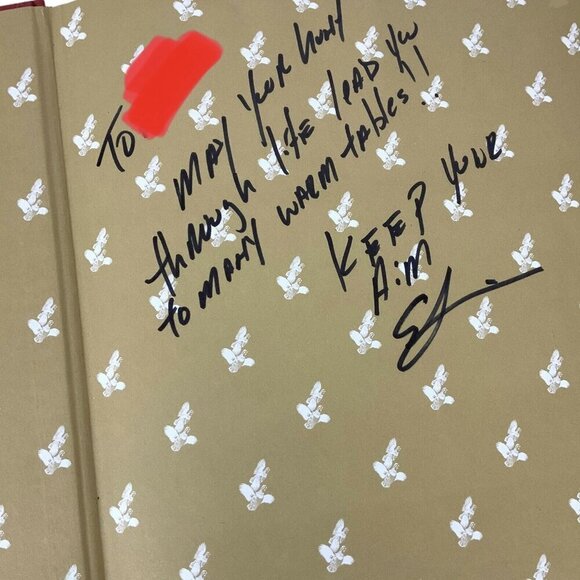 TO
MAY YOUR HUNT
through life lead you
to many warm tables!!
KEEP YOUR
AIM